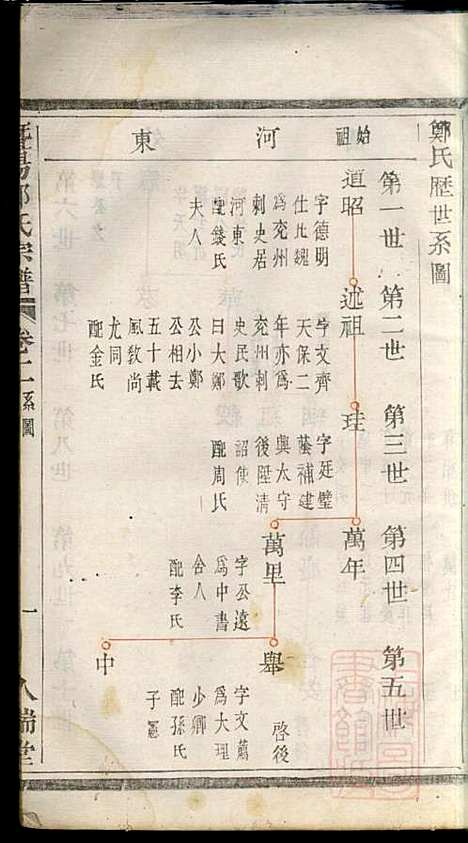 鄭氏歷世系圖
第一世
第二世
第三世
第四世
第五世
始祖
河東
道昭
字德明
仕北魏
為兗州
刺史居
河東氏
配錢氏
夫人
述祖
字文齊
天保二
年亦為
兗州刺
史民歌
曰大鄭
公小鄭
公相去
五十載
風敎尚
尤同
配金氏
珪
字廷璧
蔭補建
興太守
後陞清
詔使
配周氏
萬年
萬里
字公遠
為中書
舍人
配李氏
啓後
舉
字文薦
為大理
少卿
配孫氏
子
中
氏宗譜
系圖
一
八端堂